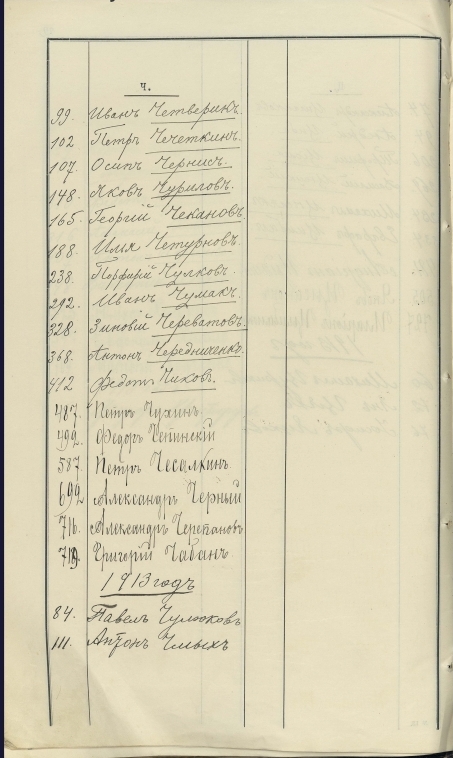 Ч.
99. Иванъ Четверикъ.
102 Петръ Чечеткинъ.
107. Осипъ Чернисъ.
148. Яковъ Чуриловъ.
165. Георгій Чекановъ
188. Илья Четурновъ.
238. Порфирій Чулковъ.
292. Иванъ Чумакъ.
328. Зиновій Череватовъ.
368. Антонъ Чередниченко.
412 Федотъ Чиковъ.
487. Петръ Чухинъ
492. Федоръ
587. Петръ Чесалкинъ
699 Александръ Черный
716. Александръ Черепановъ
719. Григорій Чабанъ
1913 годъ
84. Павелъ Чулюковъ
111. Антонъ Чмыхъ